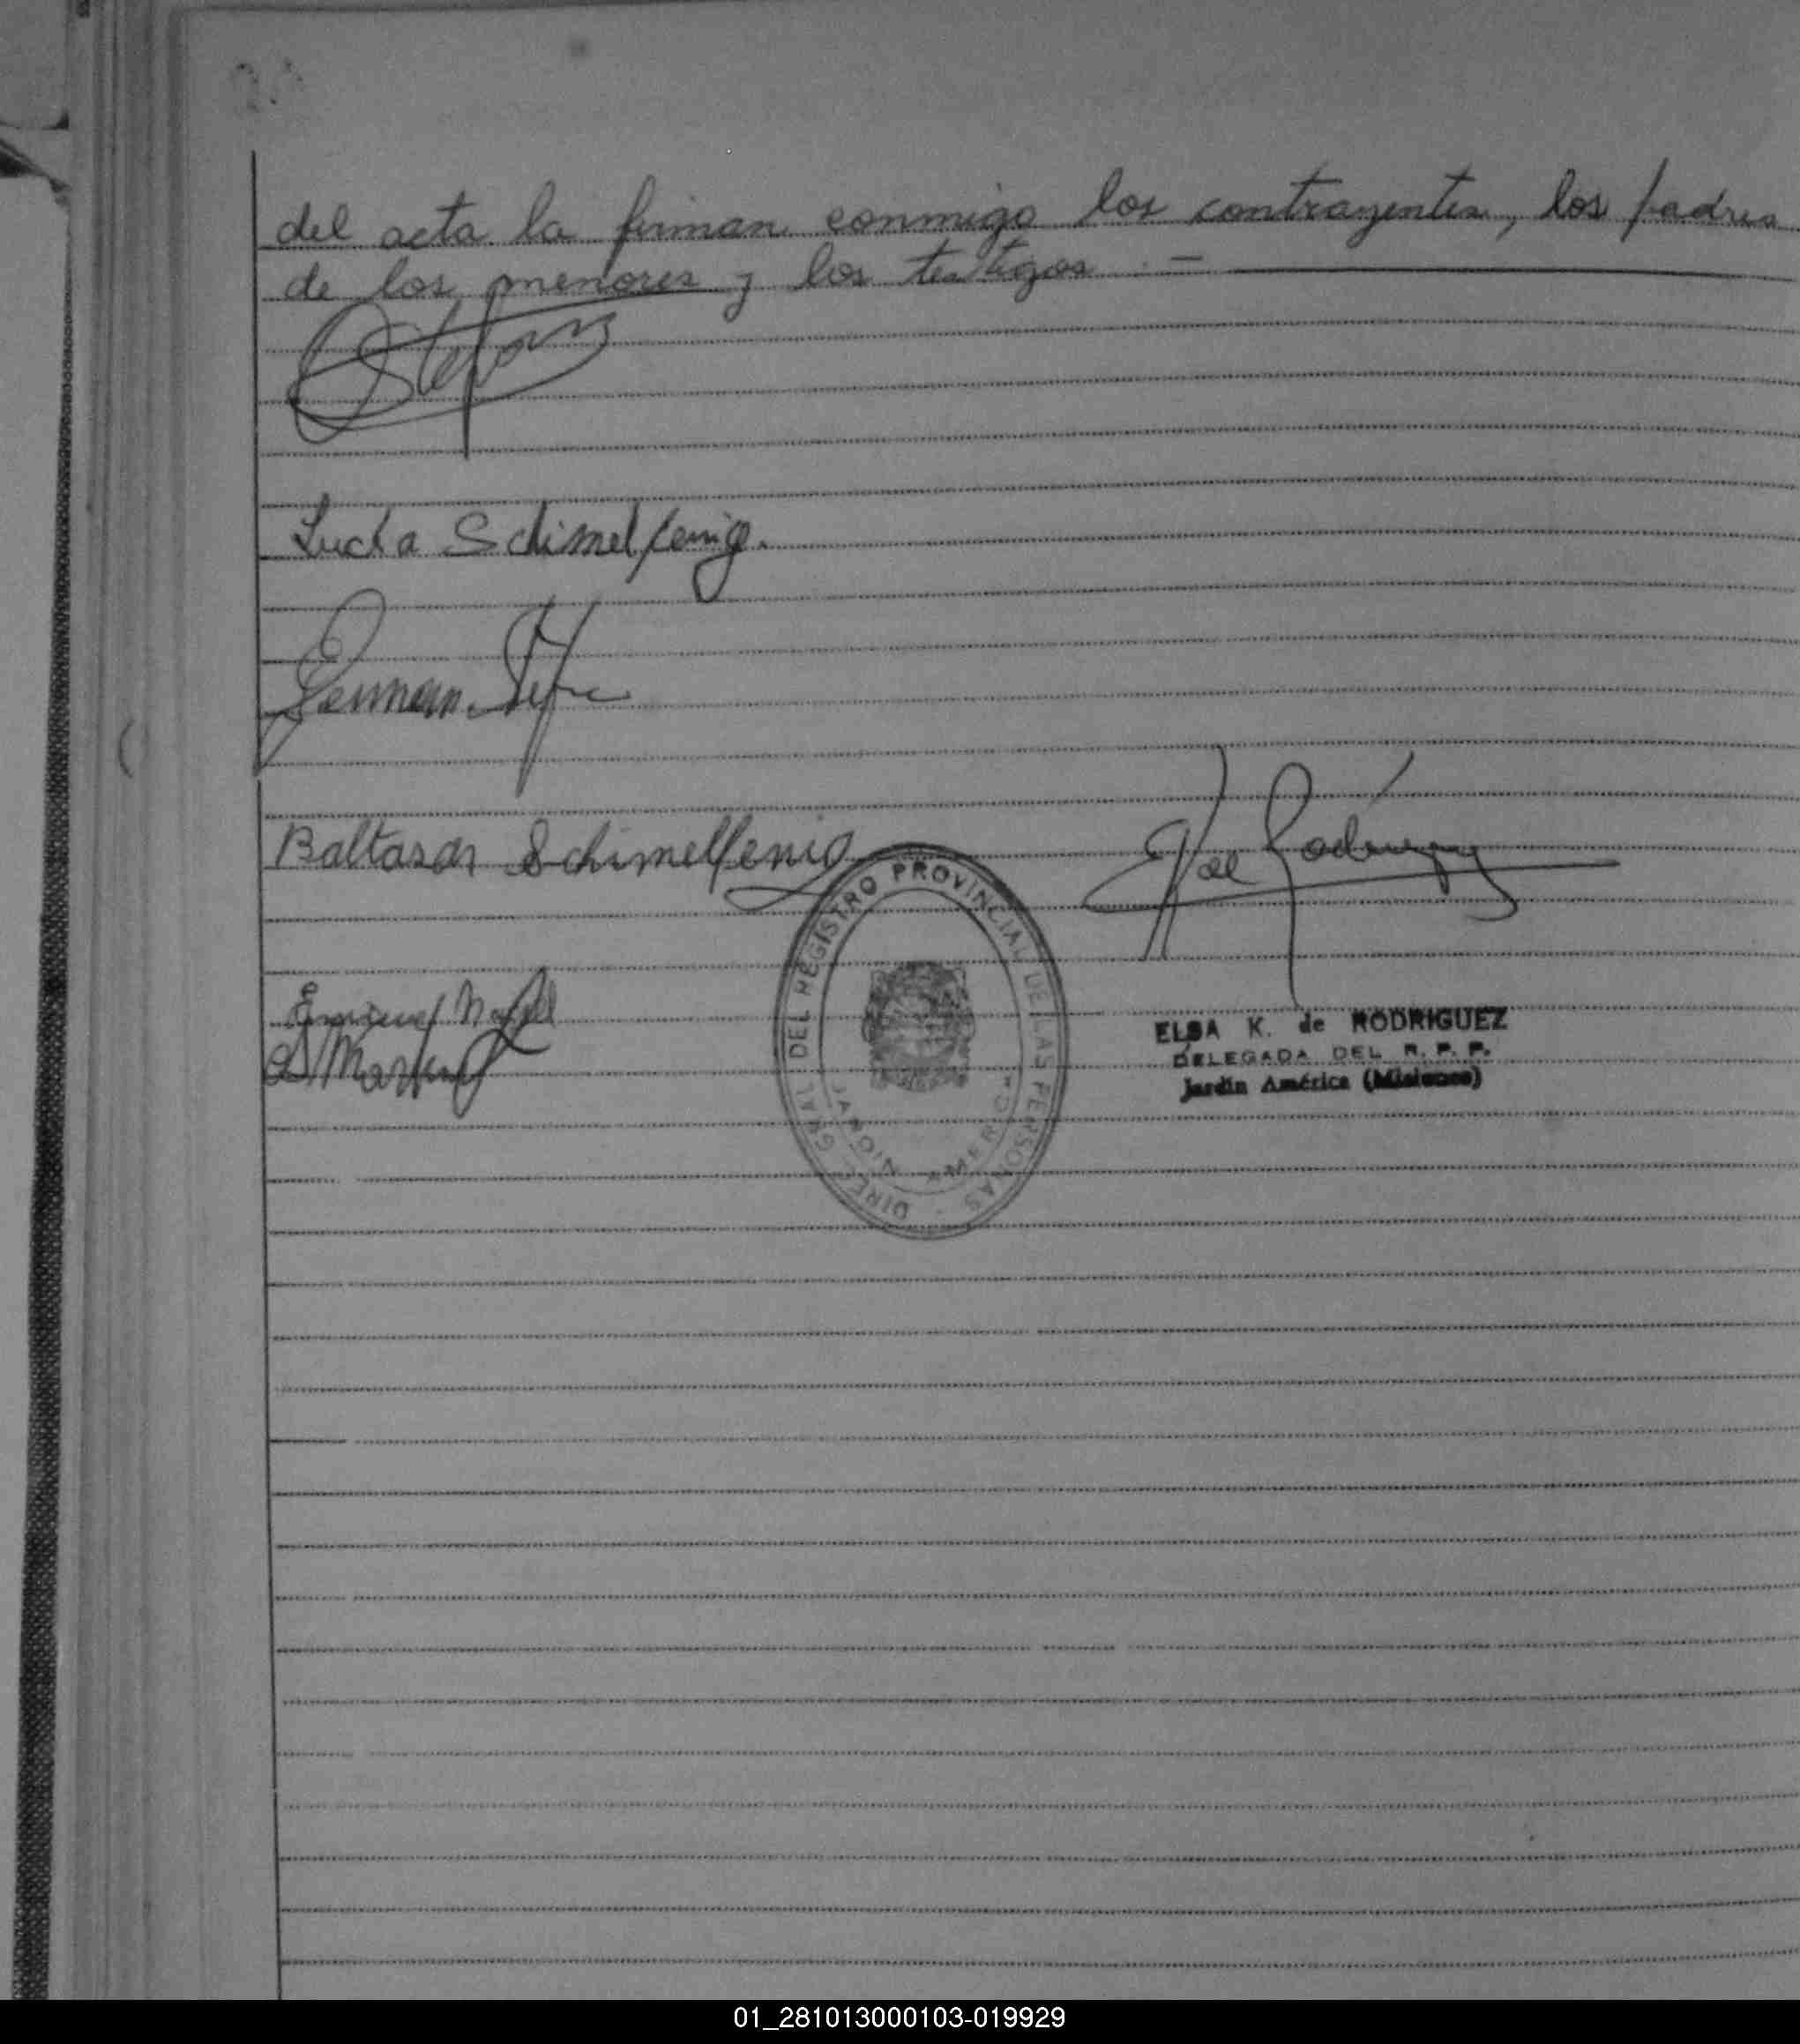 del acta la firman conmigo los contrayentes, los padres
de los menores y los testigos. —
Lucía Schimelfenig.
German
Baltasar Schimelfenig
DIREC. GRAL DEL REGISTRO PROVINCIAL DE LAS PERSONAS
JARDIN AMERICA
E K de Rodriguez
ELSA K. de RODRIGUEZ
DELEGADA DEL R. P. P.
Jardín América (Misiones)
01_281013000103-019929